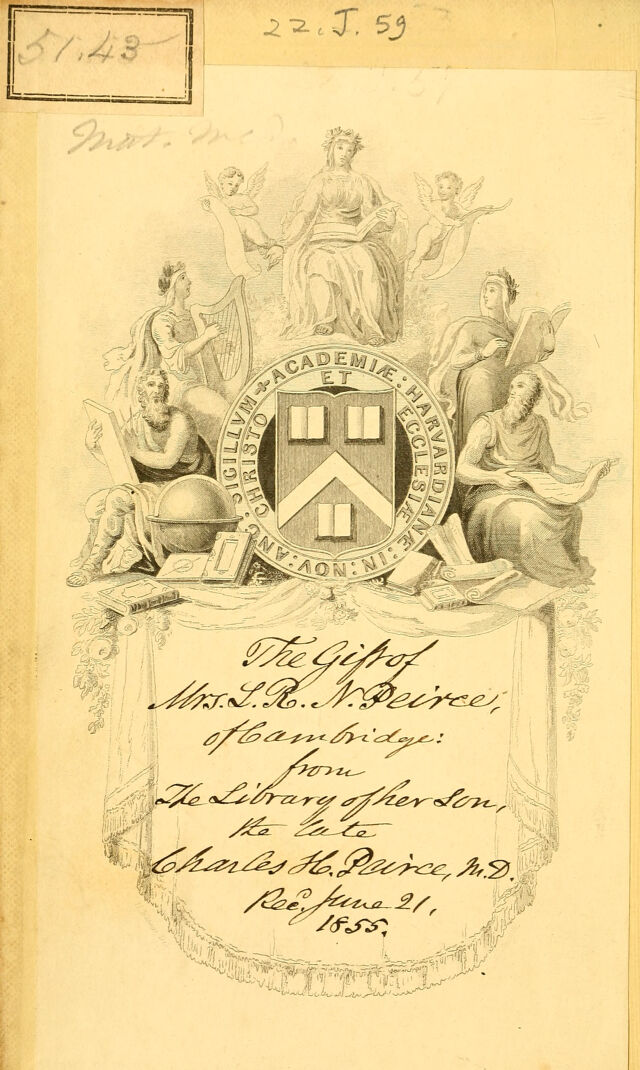 22.J.59
51.43
SIGILLVM ACADEMIÆ: HARVARDIANÆ: IN: NOV: ANG:
CHRISTO ET ECCLESIÆ
The Gift of
Mrs. L. R. N. Peirce,
of Cambridge:
from
The Library of her Son,
the late
Charles H. Peirce, M.D.
Rec. June 21,
1855.